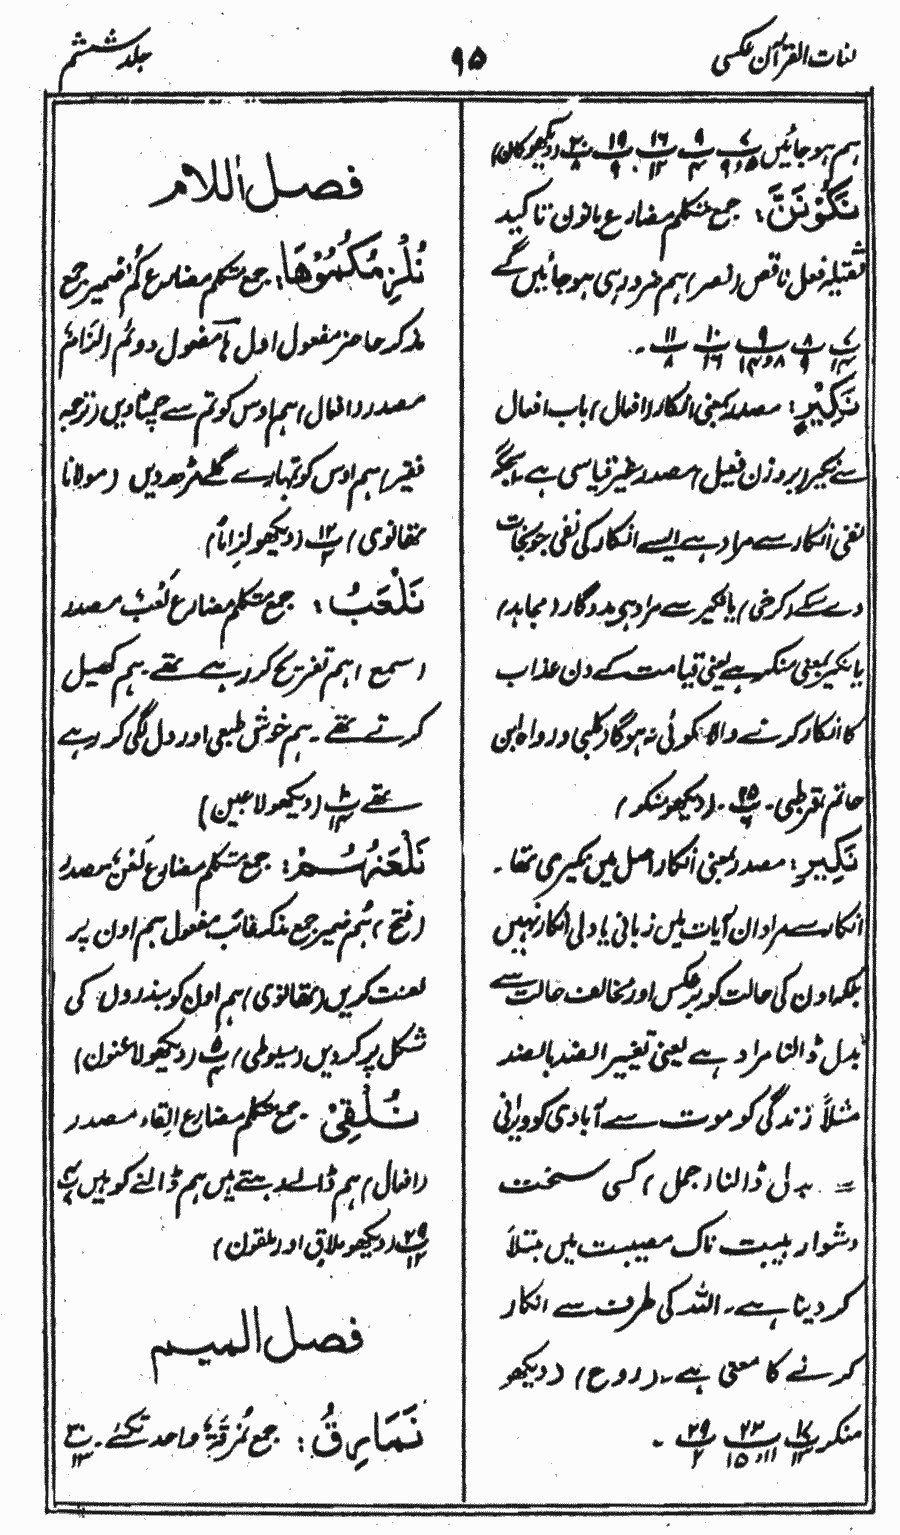 لغات القرآن عکسی
۹۵
جلد ششم
ہم ہوجائیں پ۷ ۵و۹ پ۹ ۴ پ۱۶ ۱۲ پ۱۹ ۹ پ۲۰ ۸ (دیکھو کان)
نَکُوْنَنَّ: جمع متکلم مضارع بانون تاکید
ثقیلہ فعل ناقص (نصر) ہم ضرور ہی ہوجائیں گے
پ۷ ۱۴ پ۸ ۹ پ۹ ۸و۱۴ پ۱۰ ۱۶ پ۱۱ ۸ ۔
نَکِیْرٍ: مصدر بمعنی انکار (افعال) باب افعال
سے نکیر (بروزن فعیل) مصدر غیر قیاسی ہے
نفی انکار سے مراد ہے ایسے انکار کی نفی جو نجات
دے سکے (کرخی) یا نکیر سے مراد ہی مددگار (مجاہد)
یا نکیر بمعنی منکر ہے یعنی قیامت کے دن عذاب
کا انکار کرنے والا کوئی نہ ہوگا (کلبی و رواہ ابن
حاتم، قرطبی۔ پ۲۵ ۶۔ (دیکھو منکر)
نَکِیْرِ: مصدر بمعنی انکار اصل میں نکیری تھا۔
انکار سے مراد ان آیات میں زبانی یا دلی انکار نہیں
بلکہ اون کی حالت کو برعکس اور مخالف حالت سے
بدل ڈالنا مراد ہے یعنی تغییر الضد بالضد
مثلاً زندگی کو موت سے آبادی کو ویرانی
سے بدل ڈالنا (جمل) کسی سخت
دشوار ہیبت ناک مصیبت میں مبتلا
کر دینا ہے۔ اللہ کی طرف سے انکار
کرنے کا معنی ہے۔ (روح) (دیکھو
منکر پ۱۷ ۱۳ پ۲۲ ۱۱و۱۵ پ۲۹ ۲ ۔
فصل اللام
نُلْزِمُکُمُوْهَا: جمع متکلم مضارع کُم ضمیر جمع
مذکر حاضر مفعول اول ہا مفعول دوئم الزام
مصدر (افعال) ہم اوس کو تم سے چمٹا دیں (ترجمہ
فقیر) ہم اوس کو تمہارے گلے مڑھ دیں (مولانا
تھانوی) پ۱۲ ۳ (دیکھو لزاماً)
نَلْعَبُ: جمع متکلم مضارع لَعْب مصدر
(سمع) ہم تفریح کر رہے تھے۔ ہم کھیل
کرتے تھے۔ ہم خوش طبعی اور دل لگی کر رہے
تھے پ۱۰ ۱۴ (دیکھو لاعبین)
نَلْعَنَهُمْ: جمع متکلم مضارع لَعْن مصدر
(فتح) ہُم ضمیر جمع مذکر غائب مفعول ہم اون پر
لعنت کریں (تھانوی) ہم اون کو بندروں کی
شکل پر کر دیں (سیوطی) پ۵ ۴ (دیکھو لاعنون)
نُلْقِیْ: جمع متکلم مضارع القاء مصدر
(افعال) ہم ڈالے دیتے ہیں ہم ڈالنے کو ہیں
پ۲۹ ۱۳ (دیکھو ملاق اور ملقون)
فصل المیم
نَمَارِقُ: جمع نُمرقۃ واحد تکئے۔ پ۳۰ ۱۳